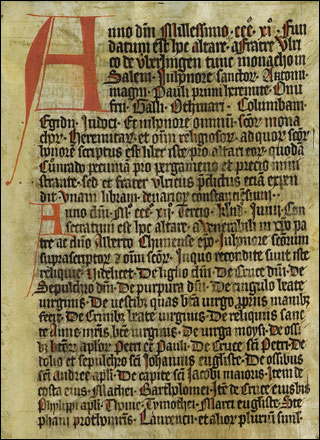 Anno dñi Millessimo · ccc · xi · Fun
datum est ipe altare · a Fratre Ulri
co de Uberlingen tunc monacho in
Salem · In honore sanctor Antonii
magni · Pauli primi heremite · Onu
frii · Galli · Othmari · Columbani
Egidii · Iudoci · Et in honore omnium scor mona
chor · Heremitar · et oim religiosor · ad quor scor
honore scriptus est liber iste pro altari eor · quem
Cunrado pro pergameno et precio mini
strante · sed et frater Ulricus pdictus
dit · unam libram denarior constantiensium
Anno dñi · M · ccc · xii · Tercio · klnd · Iunii · Con
secratum est ipe altare · a venerabili in xpo pa
tre ac dño Alberto epo · In honore scorum
suprascriptor et oim scor · In quo recondite sunt iste
reliquie · Videlicet · De ligno dñi · De cruce dñi · De
Sepulchro dñi · De purpura dñi · De cingulo beate
virginis · De vestibus quas b̃a virgo ppriis manibus
fecit · De Crinibus beate virginis · De reliquiis sanc
te Anne mris bte virginis · De virga moysi · De ossi
bus btor aplor Petri et Pauli · De Cruce sci Petri · De
et sepulchro sci Iohannis ewgliste · De ossibus
sci andree apli · De capite sci Iacobi maioris · Item de
costa eius · Mathei · Bartholomei · Ite de Cruce eiusdem
Phylippi apli · Thome · Tymothei · Marci ewgliste · Ste
phani prothomris · Laurencii · et alior plurium simul ·